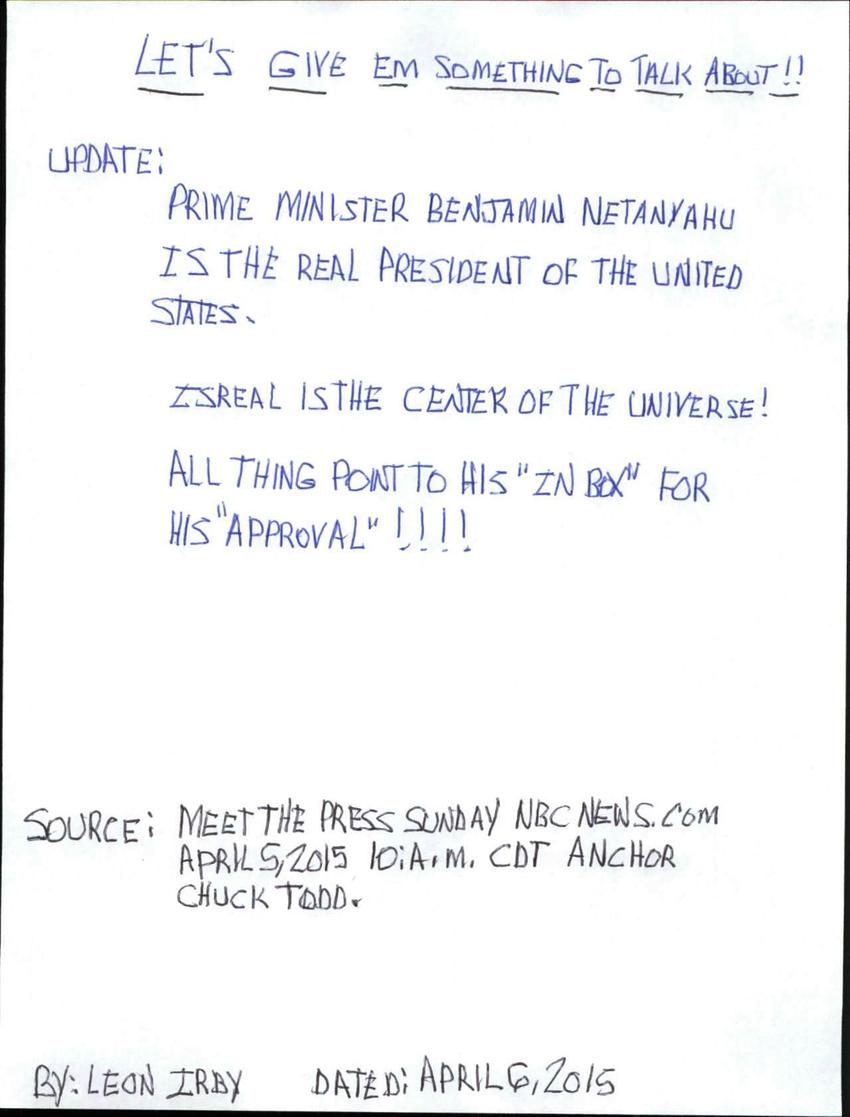 LET'S GIVE EM SOMETHING TO TALK ABOUT!!
UPDATE:
PRIME MINISTER BENJAMIN NETANYAHU
IS THE REAL PRESIDENT OF THE UNITED
STATES.
ISREAL IS THE CENTER OF THE UNIVERSE!
ALL THING POINT TO HIS "IN BOX" FOR
HIS "APPROVAL" !!!!
SOURCE: MEET THE PRESS SUNDAY NBC NEWS.COM
APRIL 5, 2015 10:A.M. CDT ANCHOR
CHUCK TODD.
BY: LEON IRBY DATED: APRIL 6, 2015